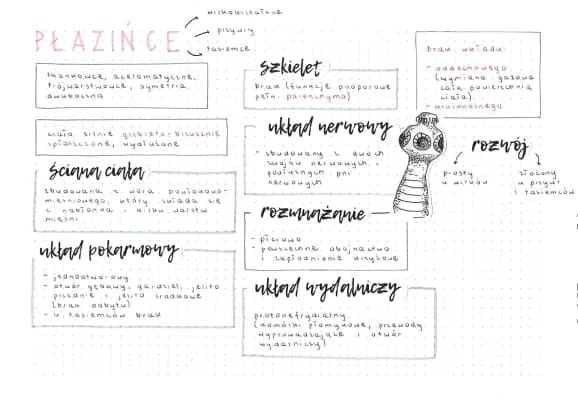 PŁAZIŃCE
wirkokształtne
przywry
tasiemce
tkankowce, acelomatyczne,
trójwarstwowe, symetria
dwuboczna
ciało silnie grzbieto-brzusznie
spłaszczone, wydłużone
ściana ciała
zbudowana z wora powłokowo-
mięśniowego, który składa się
z nabłonka i kilku warstw
mięśni
układ pokarmowy
- jednootworowy
- otwór gębowy, gardziel, jelito
przednie i jelito środkowe
(brak odbytu)
- u tasiemców brak
szkielet
brak (funkcje podporowe
pełni parenchyma)
układ nerwowy
- zbudowany z dwóch
zwojów nerwowych i
podłużnych pni
nerwowych
rozmnażanie
- płciowo
- powszechne obojnactwo
i zapłodnienie krzyżowe
układ wydalniczy
protonefrydialny
(komórki płomykowe, przewody
wyprowadzające i otwór
wydalniczy)
brak układu:
- oddechowego
(wymiana gazowa
całą powierzchnią
ciała)
- krwionośnego
rozwój
prosty
u wirków
złożony
u przywr
i tasiemców